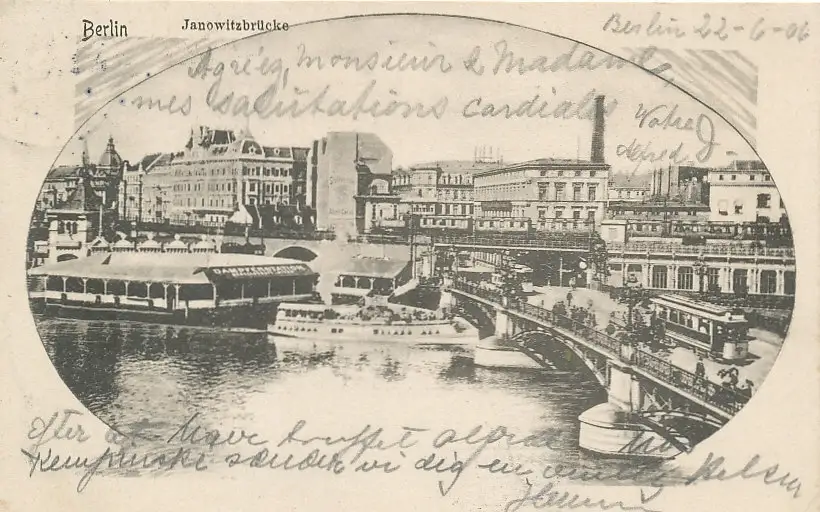 Berlin
Janowitzbrücke
Berlin 22-6-06
Agréez, Monsieur & Madame,
mes salutations cordiales
Votre
Alfred
Efter at have truffet Alfred
Kempinski sender vi dig en Hilsen